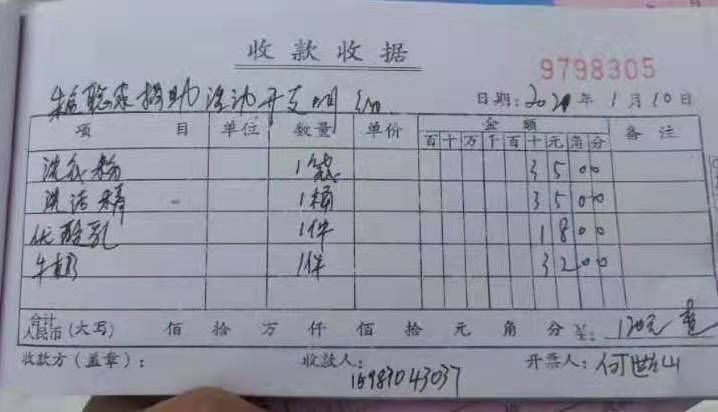 收款收据
9798305
援助活动开支明细 日期:2021年1月10日
项目 单位 数量 单价 金额 备注
百十万千百十元角分
洗衣粉 1袋 3500
洗洁精 1桶 3500
优酸乳 1件 1800
牛奶 1件 3200
合计人民币(大写) 佰 拾 万 仟 佰 拾 元 角 分 ¥: 120元
收款方(盖章): 收款人: 15987043037 开票人: 何世山